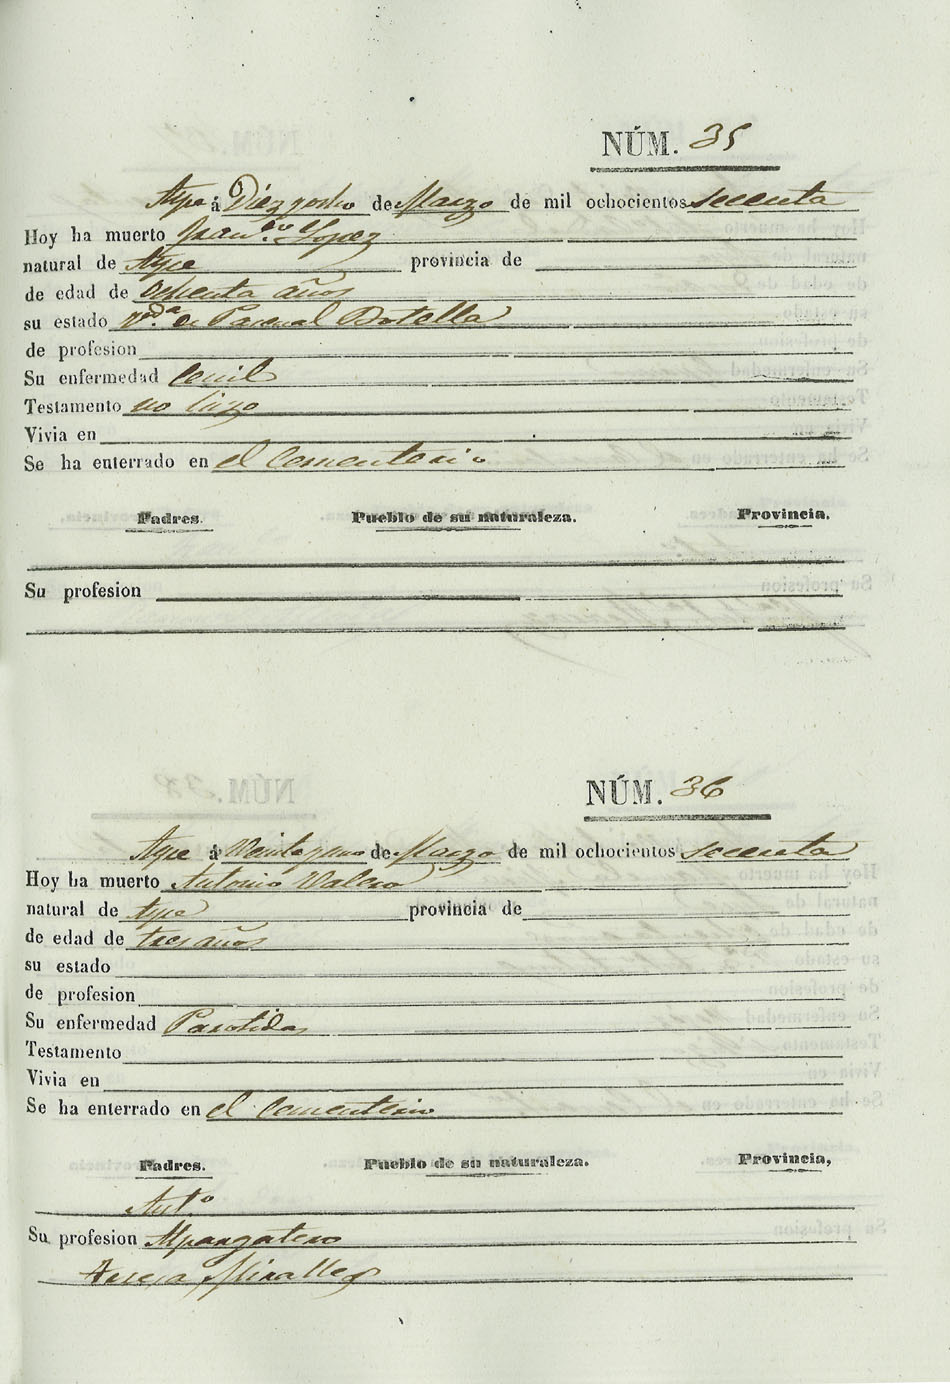 NÚM. 35
Aspe á Diez y ocho de Marzo de mil ochocientos secenta
Hoy ha muerto Fran.ca Lopez
natural de Aspe provincia de
de edad de ochenta años
su estado V.da de Pascual Botella
de profesion
Su enfermedad Cenil
Testamento no hizo
Vivia en
Se ha enterrado en el Cementerio
Padres. Pueblo de su naturaleza. Provincia.
Su profesion
NÚM. 36
Aspe á Veinte y uno de Marzo de mil ochocientos secenta
Hoy ha muerto Antonio Valero
natural de Aspe provincia de
de edad de tres años
su estado
de profesion
Su enfermedad Parotidas
Testamento
Vivia en
Se ha enterrado en el Cementerio
Padres. Pueblo de su naturaleza. Provincia,
Ant.o
Su profesion Alpargatero
Teresa Miralles